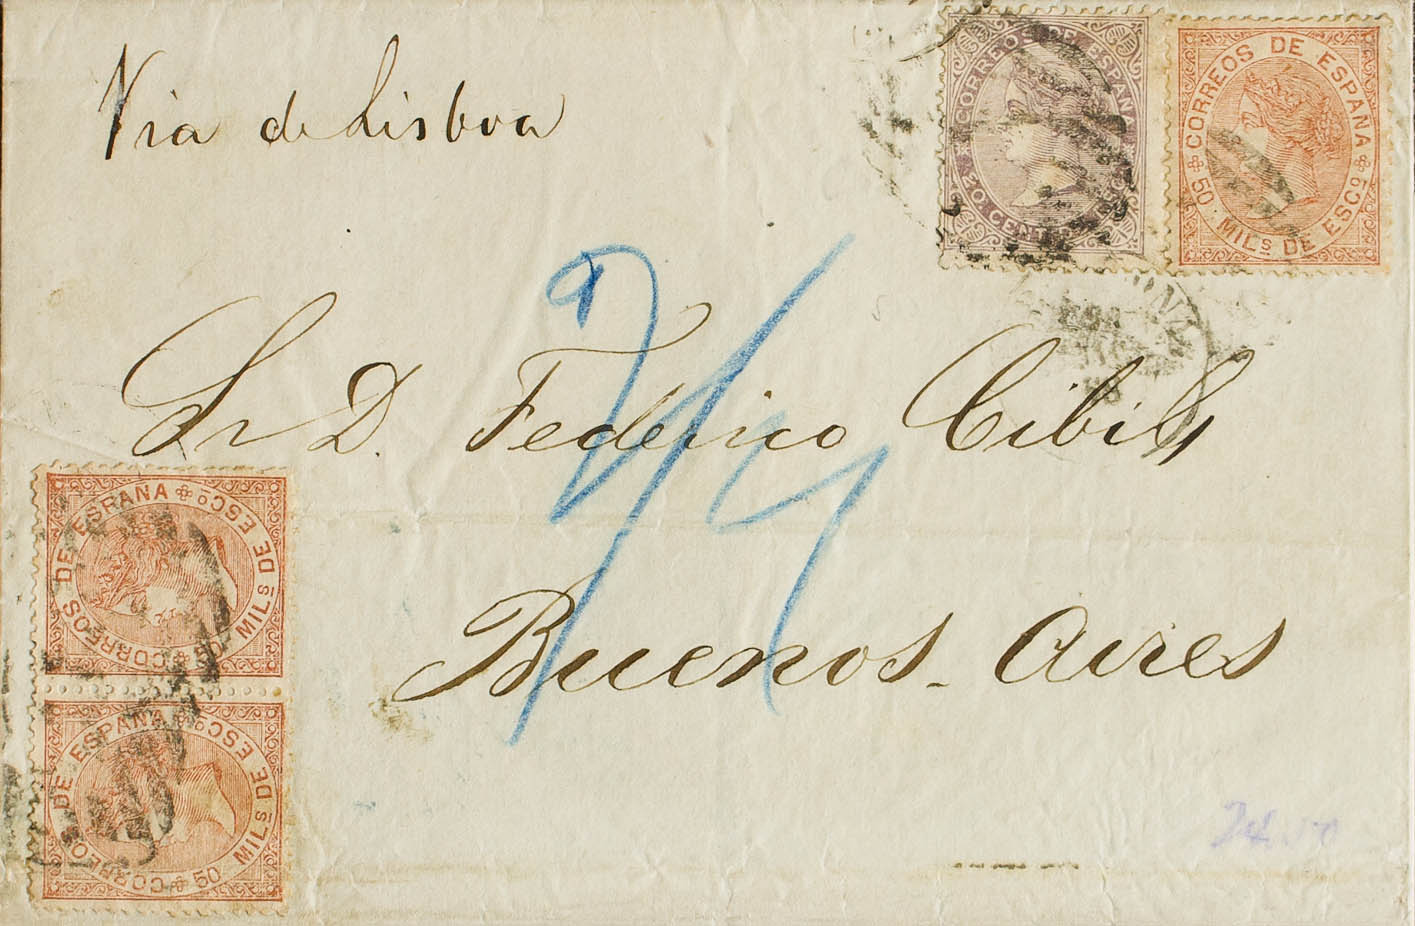 Via de Lisboa
CORREOS DE ESPAÑA
20 CENT
CORREOS DE ESPAÑA
50 MILs DE ESCo
Sr D. Federico Cibils
Buenos Aires
CORREOS DE ESPAÑA
50 MILs DE ESCo
CORREOS DE ESPAÑA
50 MILs DE ESCo